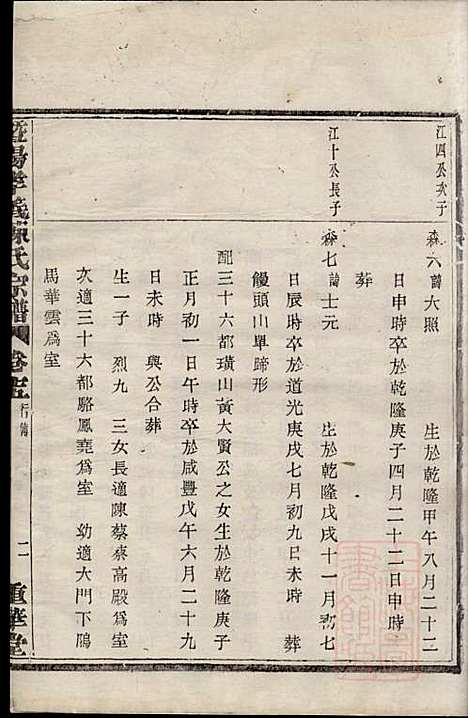 江四公次子
森六諱大照　生於乾隆甲午八月二十二
日申時卒於乾隆庚子四月二十二日申時
葬
江十公長子
森七諱士元　生於乾隆戊戌十一月初七
日辰時卒於道光庚戌七月初九日未時　葬
饅頭山單蹄形
配三十六都璜山黃大賢公之女生於乾隆庚子
正月初一日午時卒於咸豐戊午六月二十九
日未時　與公合葬
生一子　烈九　三女長適陳蔡察高殿爲室
次適三十六都駱鳳堯爲室　幼適大門下隖
馬華雲爲室
暨陽孝義 氏宗譜 卷 行傳　二　重華堂